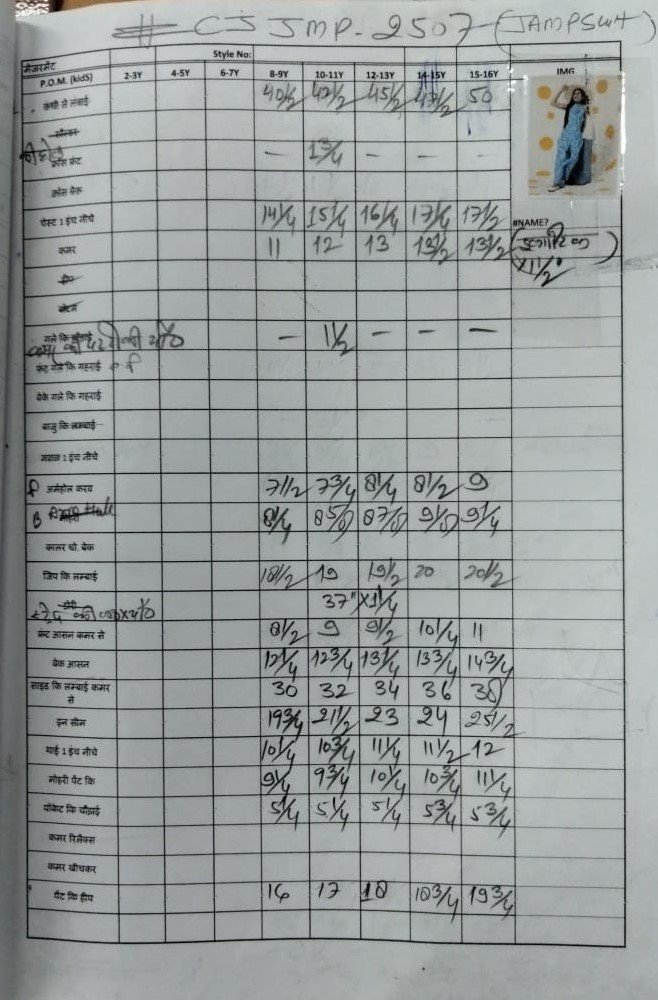 # CJ JMP-2507 (JAMPSUIT)
मेजरमेंट Style No:
P.O.M. (kidS) 2-3Y 4-5Y 6-7Y 8-9Y 10-11Y 12-13Y 14-15Y 15-16Y IMG
कंधी से लंबाई 40 1/2 42 1/2 45 1/2 47 1/2 50
क्रॉस फ्रंट — 1 3/4 — — —
क्रॉस बेक
चेस्ट 1 इंच नीचे 14 1/4 15 1/4 16 1/4 17 1/4 17 1/2 #NAME?
कमर 11 12 13 13 1/2 13 1/2
X 11 1/2"
हीप
बॉटम
गले कि चौड़ाई — 1 1/2 — — —
फ्रंट गले कि गहराई
बेक गले कि गहराई
बाजु कि लम्बाई
मसल 1 इंच नीचे
F अर्महोल करव 7 1/2 7 3/4 8 1/4 8 1/2 9
B 8 1/4 8 5/8 8 7/8 9 1/8 9 1/4
कालर चो. बेक
जिप कि लम्बाई 18 1/2 19 19 1/2 20 20 1/2
37" X 1 1/4
फ्रंट आसन कमर से 8 1/2 9 9 1/2 10 1/4 11
बेक आसन 12 1/4 12 3/4 13 1/4 13 3/4 14 3/4
साइड कि लम्बाई कमर से 30 32 34 36 38
इन सीम 19 3/4 21 1/2 23 24 25 1/2
थाई 1 इंच नीचे 10 1/4 10 3/4 11 1/4 11 1/2 12
मोहरी पेंट कि 9 1/4 9 3/4 10 1/4 10 3/4 11 1/4
पॉकेट कि चौड़ाई 5 1/4 5 1/4 5 1/4 5 3/4 5 3/4
कमर रिलैक्स
कमर खीचकर
पेंट कि हीप 16 17 18 18 3/4 19 3/4